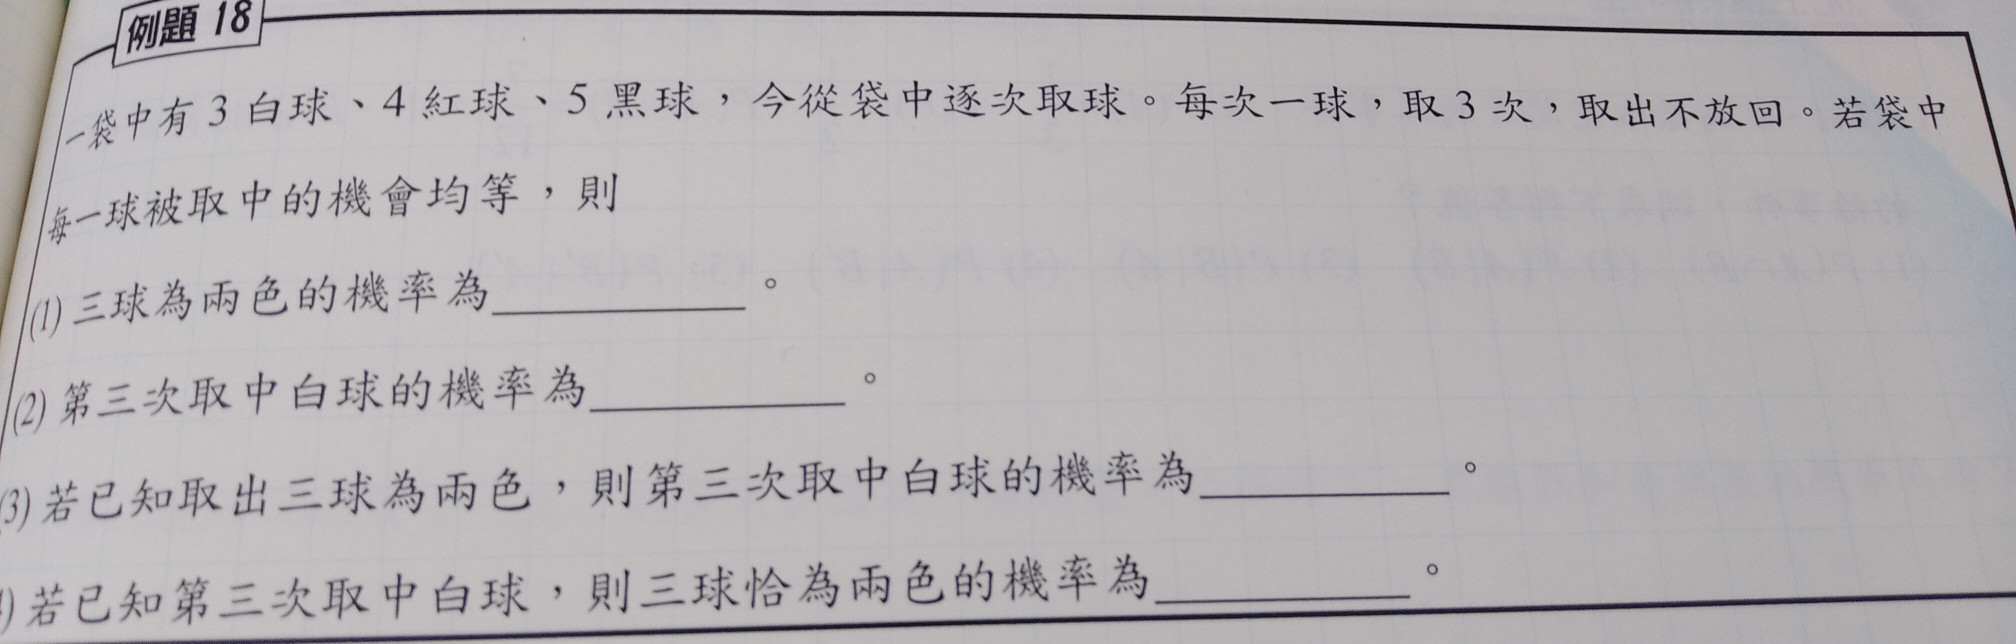 例題 18
一袋中有 3 白球、4 紅球、5 黑球，今從袋中逐次取球。每次一球，取 3 次，取出不放回。若袋中
每一球被取中的機會均等，則
(1) 三球為兩色的機率為__________。
(2) 第三次取中白球的機率為__________。
(3) 若已知取出三球為兩色，則第三次取中白球的機率為__________。
) 若已知第三次取中白球，則三球恰為兩色的機率為__________。